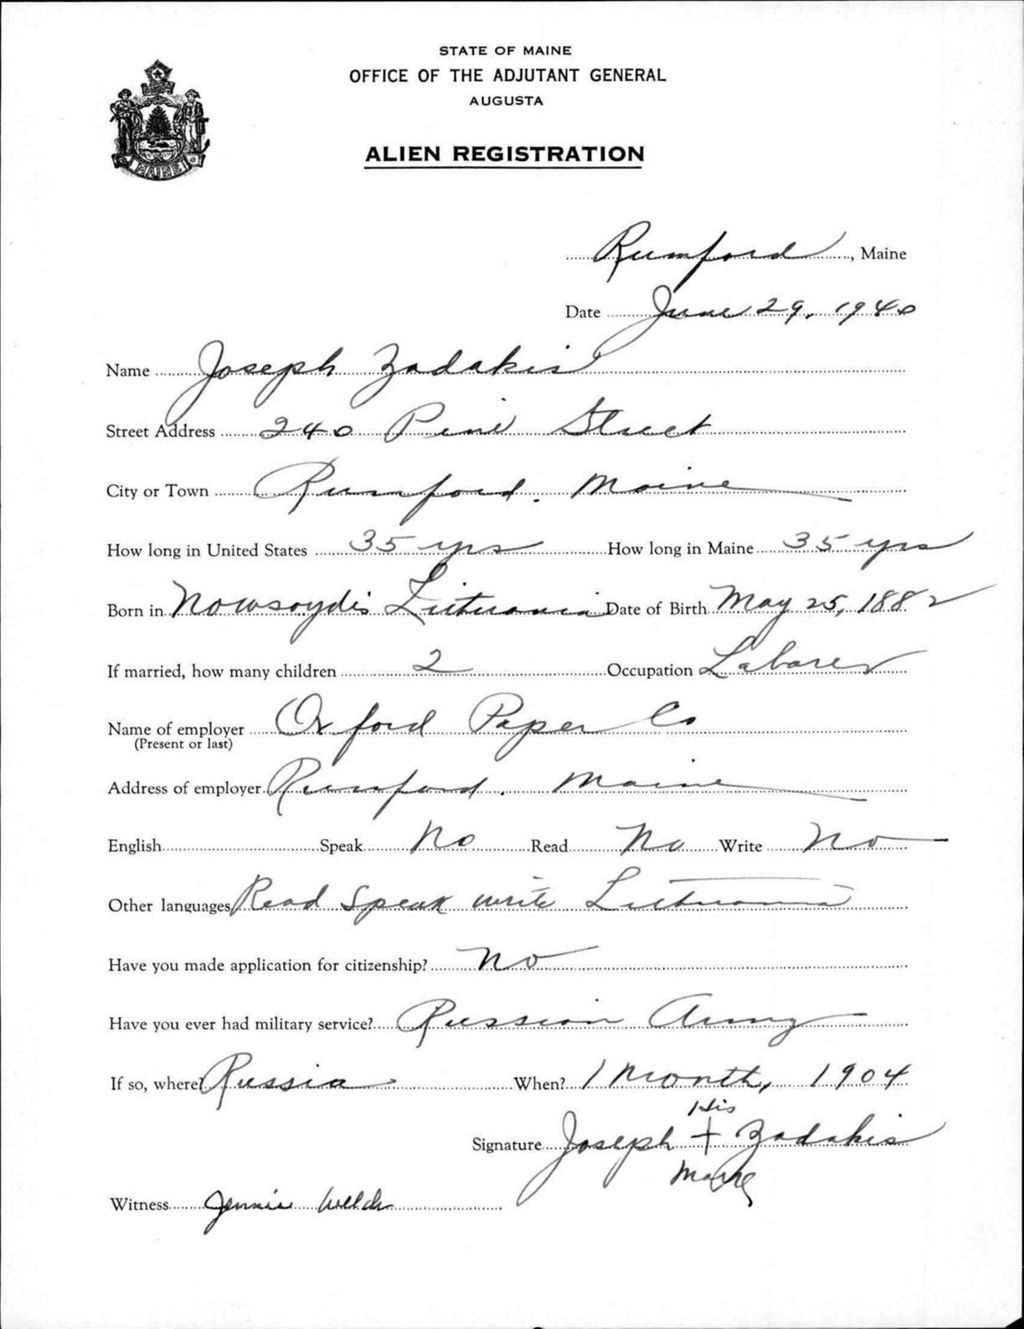 STATE OF MAINE
OFFICE OF THE ADJUTANT GENERAL
AUGUSTA
ALIEN REGISTRATION
MAINE
Rumford, Maine
Date June 29, 1940
Name Joseph Zadakis
Street Address 240 Pine Street
City or Town Rumford. Maine
How long in United States 35 yrs How long in Maine 35 yrs
Born in Nowsoydis Lithuania Date of Birth May 25, 1882
If married, how many children 2 Occupation Laborer
Name of employer Oxford Paper Co
(Present or last)
Address of employer Rumford. Maine
English Speak No Read No Write No
Other languages Read Speak write Lithuania
Have you made application for citizenship? No
Have you ever had military service? Russian Army
If so, where? Russia When? 1 Month, 1904
His
Signature Joseph + Zadakis
Mark
Witness Jennie Welch